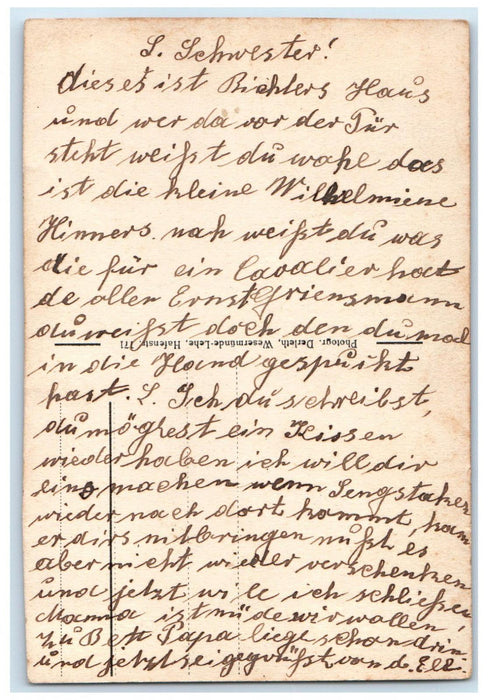 L. Schwester!
dieses ist Richters Haus
und wer da vor der Tür
steht weißt du wohl das
ist die kleine Wilhelmiene
Hinners. nah weißt du was
die für ein Cavalier hat
de ollen Ernst Griensmann
du weißt doch den du mal
Photogr. Derleth, Wesermünde-Lehe, Hafenstr. 171
in die Hand gespukt
hast. L. Sch du schreibst,
du mögtest ein Kissen
wieder haben ich will dir
eins machen wenn Sengstaken
wieder nach dort kommt, kann
er dirs mitbringen mußt es
aber nicht wieder verschenken
und jetzt will ich schließen
Mama ist müde wir wollen
zu Bett Papa liegt schon drin
und jetzt sei gegrüßt von d. Elli